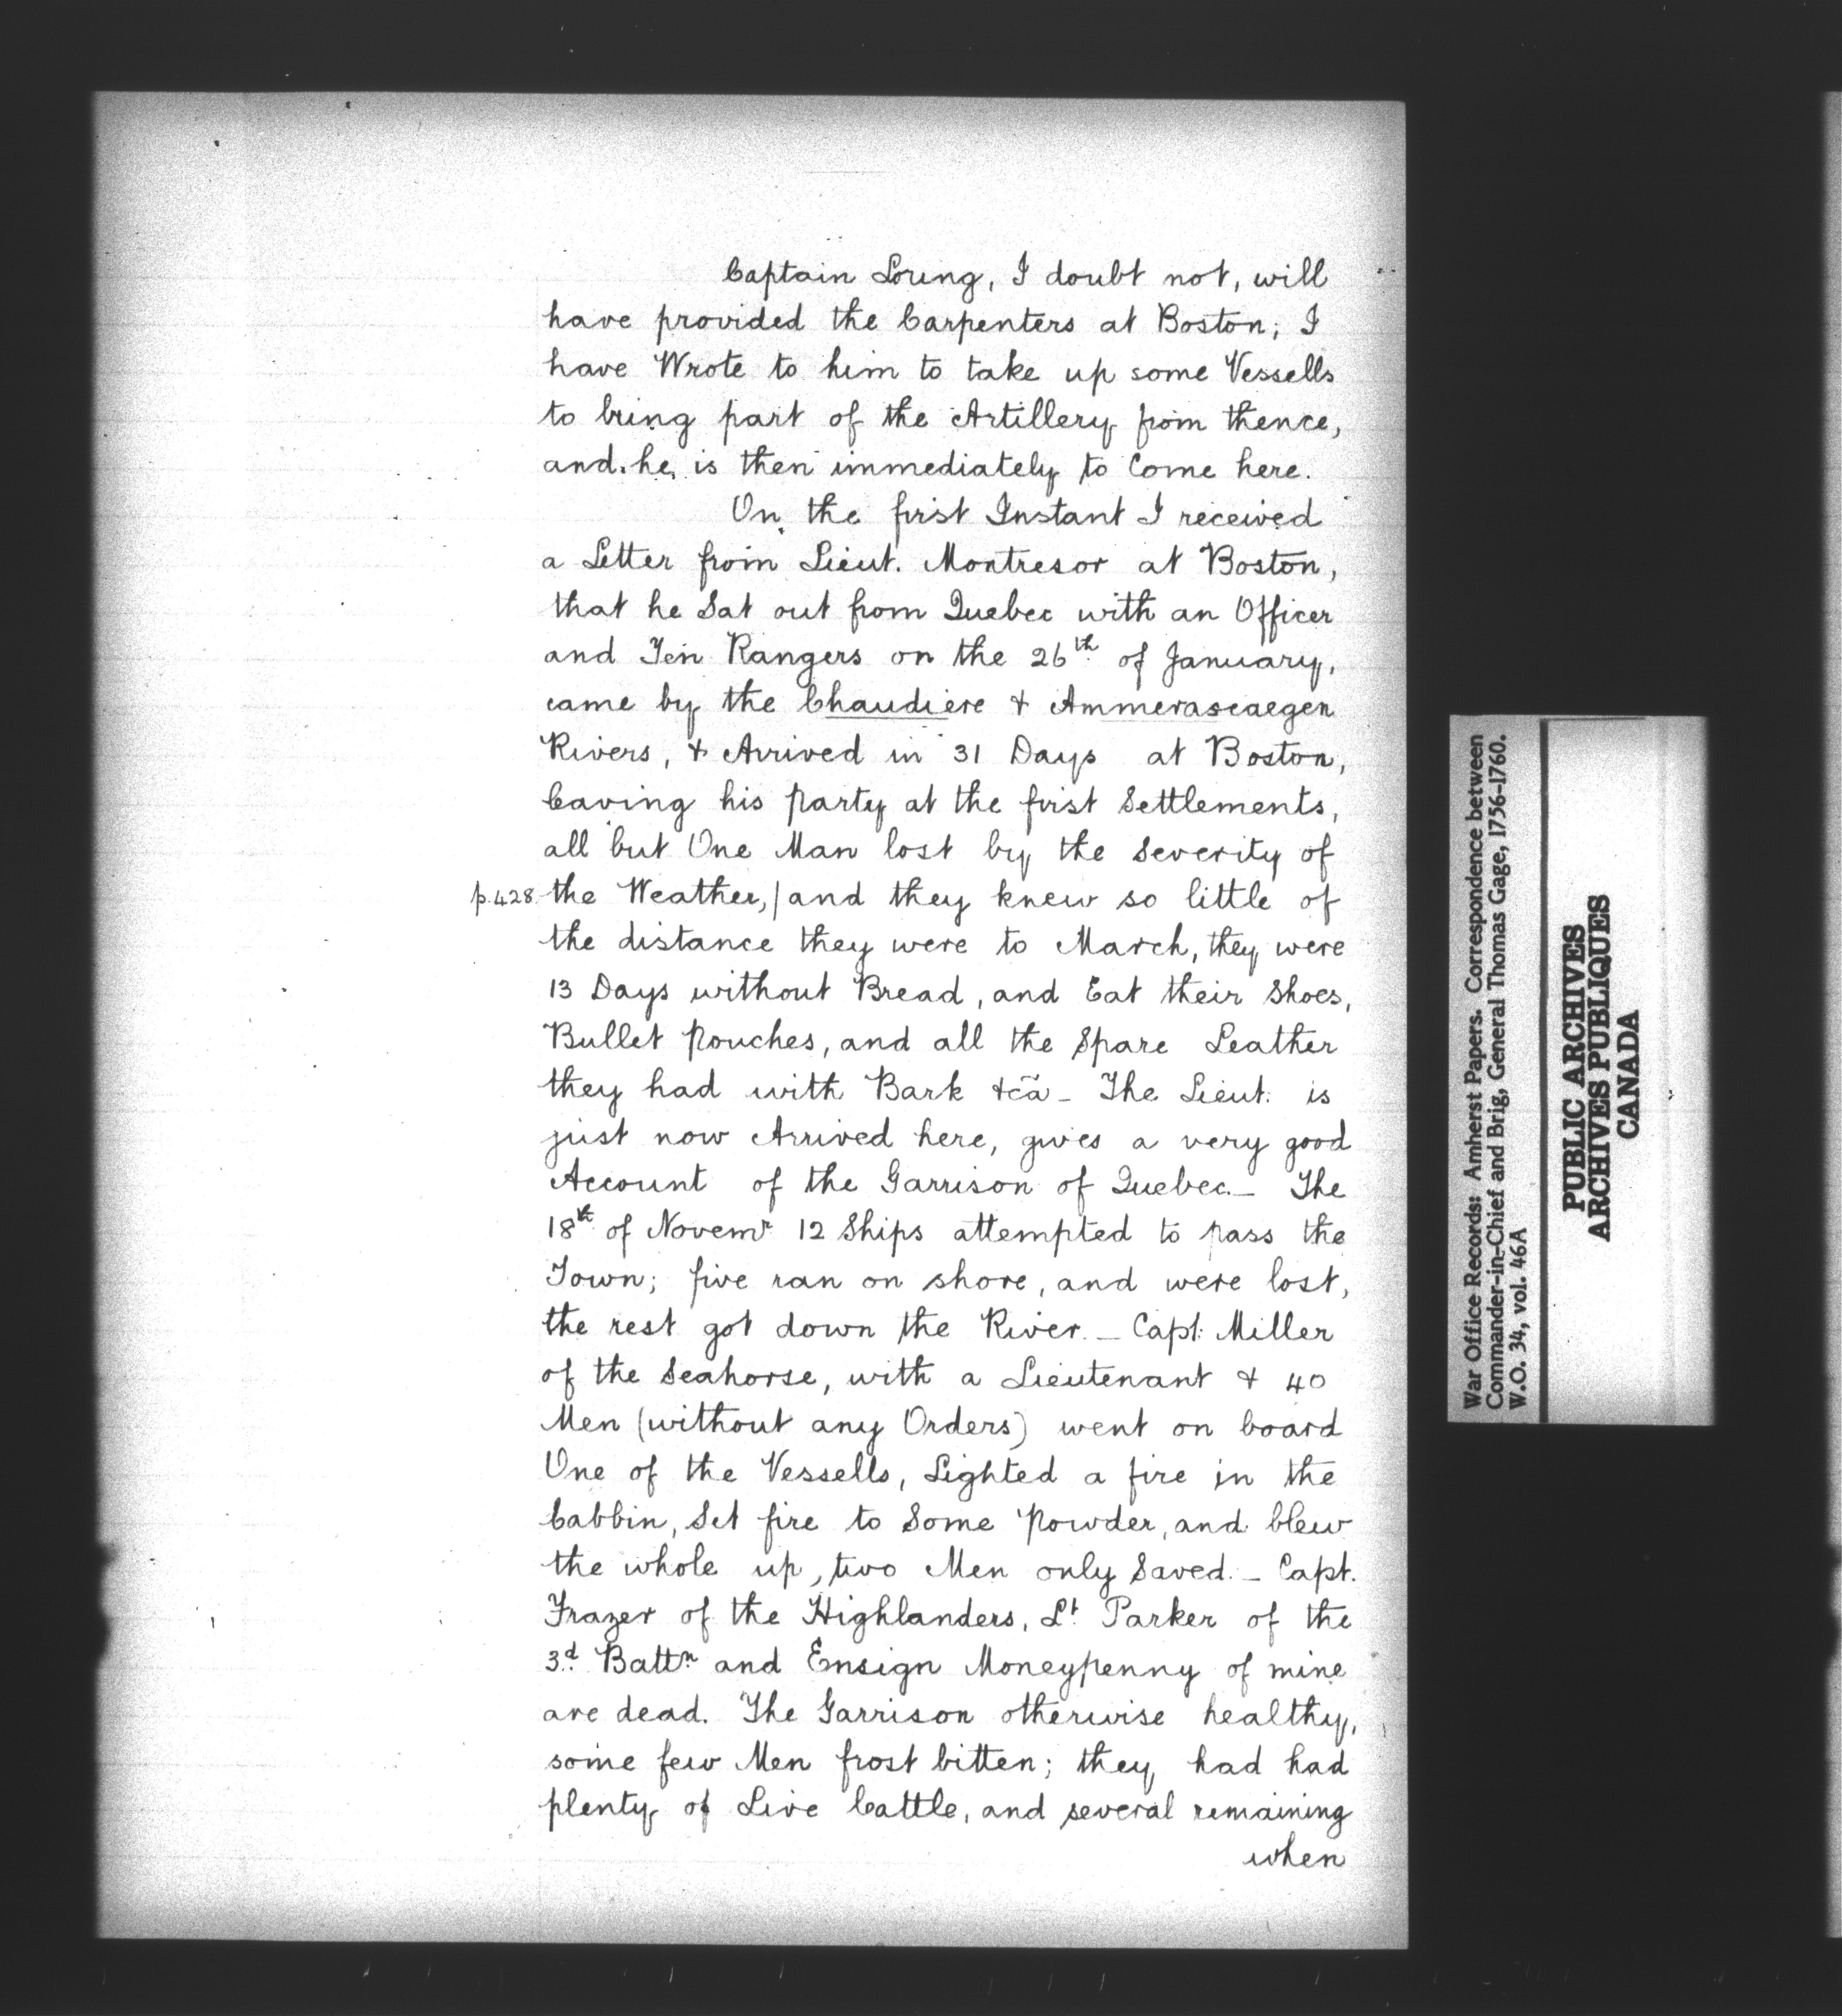 Captain Loring, I doubt not, will
have provided the Carpenters at Boston; I
have Wrote to him to take up some Vessells
to bring part of the Artillery from thence,
and he is then immediately to Come here.
On the first Instant I received
a Letter from Lieut. Montresor at Boston,
that he Sat out from Quebec with an Officer
and Ten Rangers on the 26th of January,
came by the Chaudiere & Ammerascaegen
Rivers, & Arrived in 31 Days at Boston,
leaving his party at the first Settlements,
all but One Man lost by the Severity of
p.428. the Weather,/ and they knew so little of
the distance they were to March, they were
13 Days without Bread, and Eat their Shoes,
Bullet Pouches, and all the Spare Leather
they had with Bark &cã – The Lieut: is
just now Arrived here, gives a very good
Account of the Garrison of Quebec. – The
18th of Novemr 12 Ships attempted to pass the
Town; five ran on shore, and were lost,
the rest got down the River. – Capt: Miller
of the Seahorse, with a Lieutenant & 40
Men (without any Orders) went on board
One of the Vessells, Lighted a fire in the
Cabbin, Set fire to Some Powder, and blew
the whole up, two Men only Saved. – Capt.
Frazer of the Highlanders, Lt. Parker of the
3d. Battn. and Ensign Moneypenny of mine
are dead. The Garrison otherwise healthy,
some few Men frost bitten; they had had
plenty of Live Cattle, and several remaining
when
War Office Records: Amherst Papers. Correspondence between
Commander-in-Chief and Brig, General Thomas Gage, 1756-1760.
W.O. 34, vol. 46A
PUBLIC ARCHIVES
ARCHIVES PUBLIQUES
CANADA